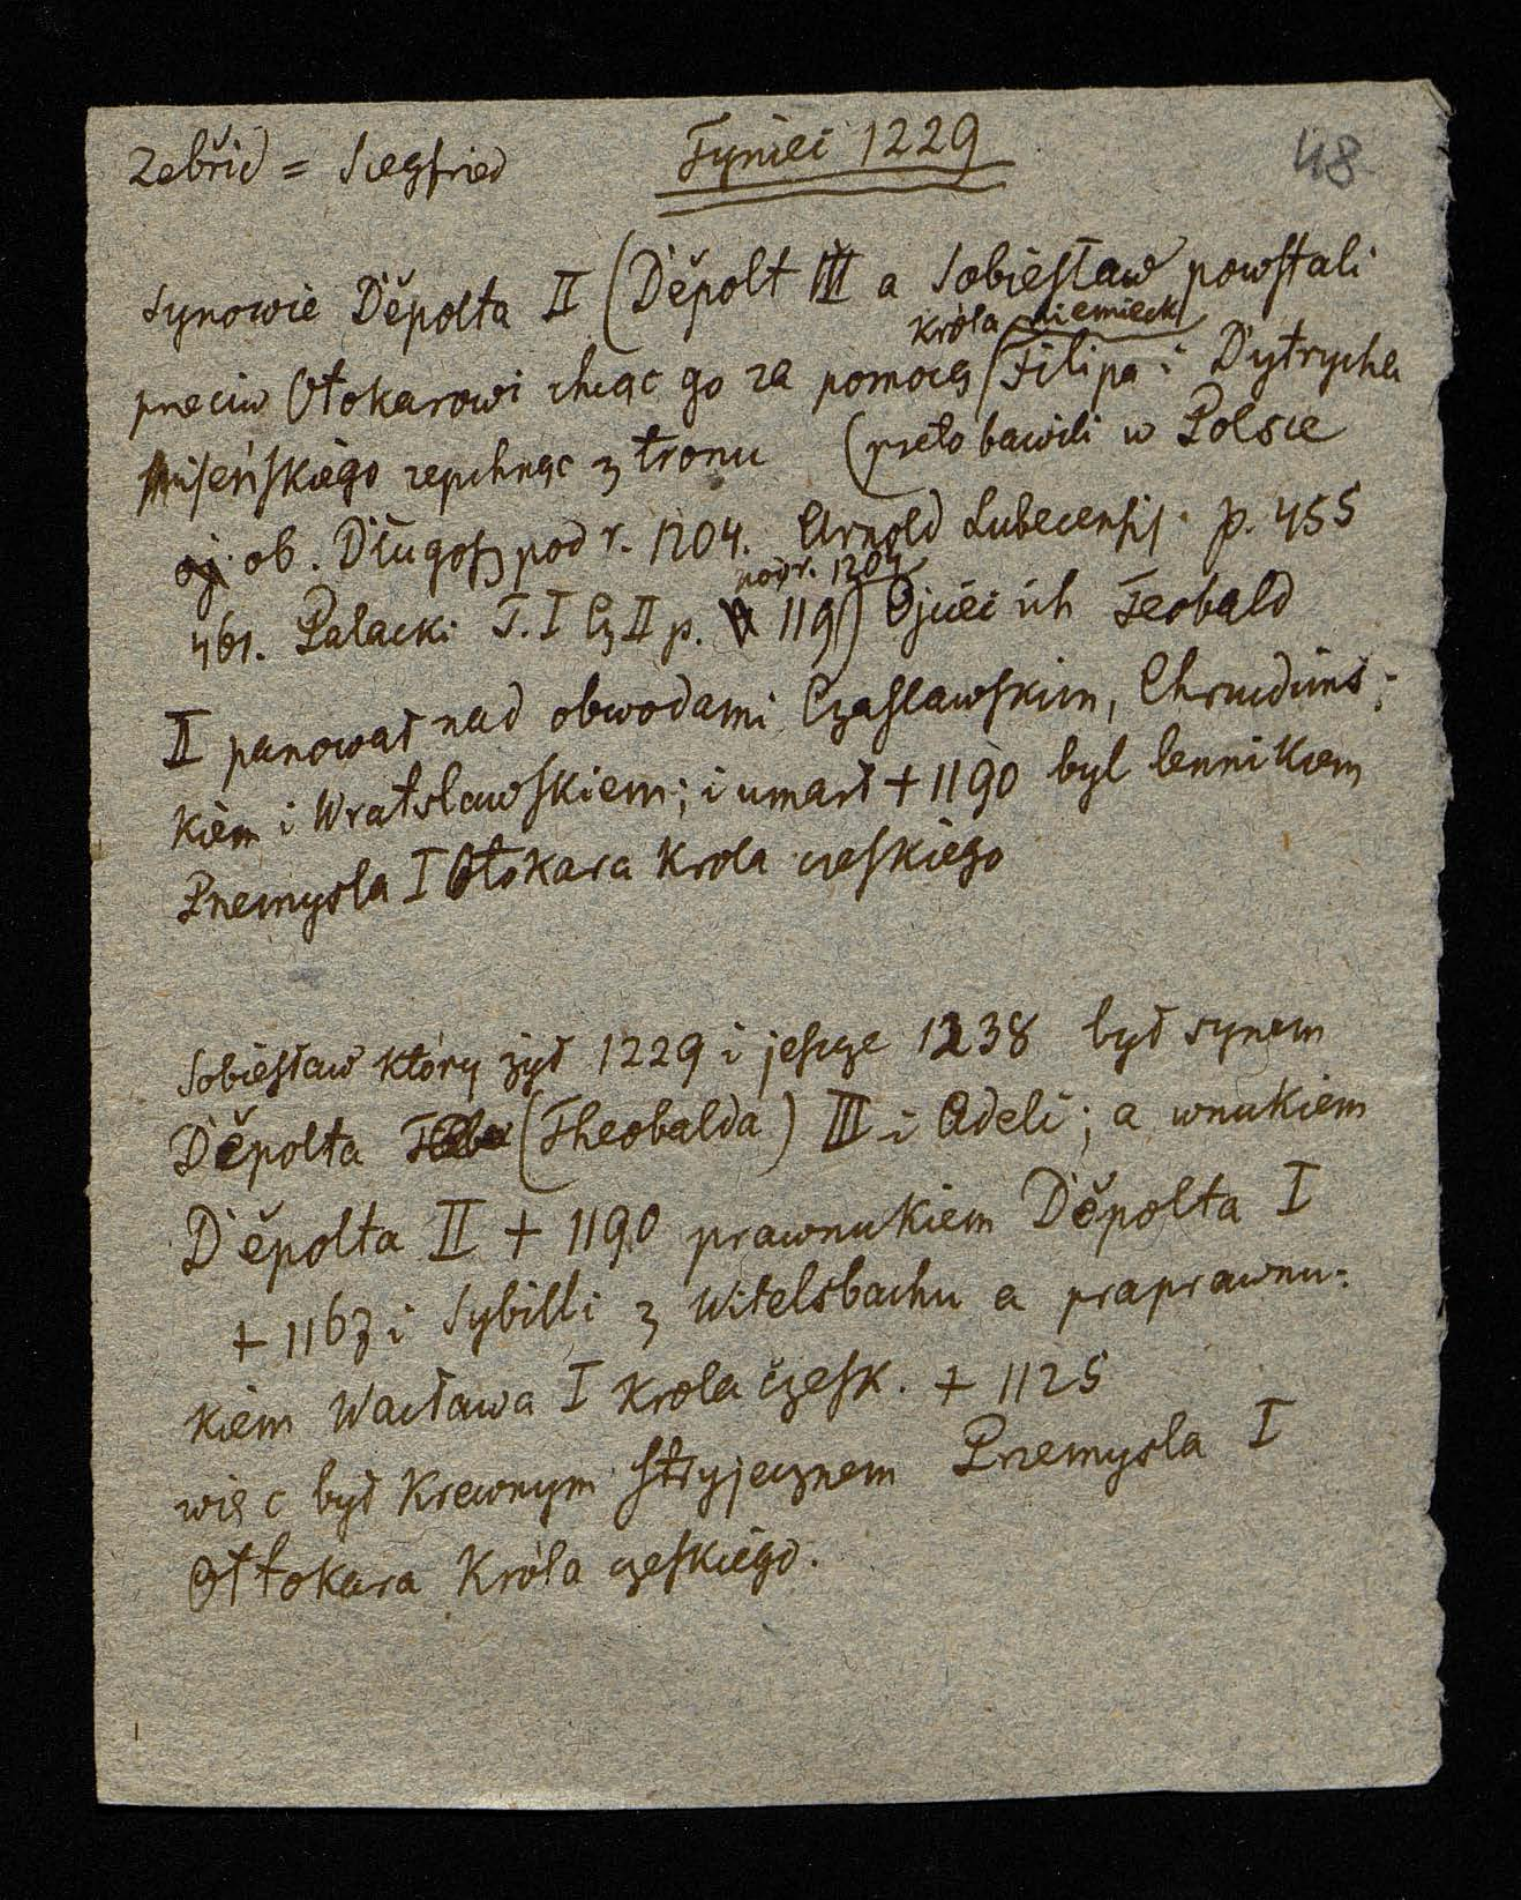 Zebřid = Siegfried Tyniec 1229 48
Synowie Děpolta II (Děpolt III a Sobiesław powstali
króla niemieck
przeciw Otokarowi chcąc go za pomocą Filipa i Dytrycha
Miseńskiego zepchnąc z tronu (przeto bawili w Polsce
ob. Długosz pod r. 1204. Arnold Lubecensis p. 455
pod r. 1204
461. Palacki T. I Cz II p. 119) Ojciec ich Teobald
II panował nad obwodami Czaslawskim, Chrudims-
kiem i Wratslawskiem; i umarł + 1190 byl lennikiem
Przemysla I Otokara Krola czeskiego
Sobiesław który żył 1229 i jescze 1238 był synem
Děpolta (Theobalda) III i Adeli; a wnukiem
Děpolta II + 1190 prawnukiem Děpolta I
+ 1167 i Sybilli z Witelsbachu a praprawnu-
kiem Wacława I Krola czesk. + 1125
więc był Krewnym stryjecznem Przemysla I
Ottokara Króla czeskiego.